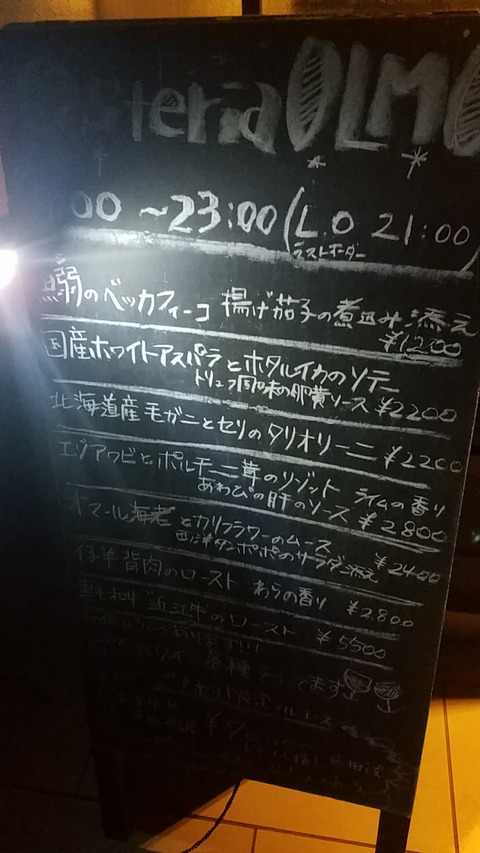 Osteria OLMO
00 ~23:00 (L.O 21:00
ラストオーダー
鰯のベッカフィーコ 揚げ茄子の煮込み添え
¥1200
国産ホワイトアスパラとホタルイカのソテー
トリュフ風味の卵黄ソース ¥2200
北海道産毛ガニとセリのタリオリーニ ¥2200
エゾアワビとポルチーニ茸のリゾット ライムの香り
あわびの肝のソース ¥2.800
オマール海老とカリフラワーのムース
西洋タンポポのサラダ添え ¥2400
仔羊背肉のロースト わらの香り ¥2.800
黒毛和牛"近江牛"のロースト ¥5500
ワイン各種
ます